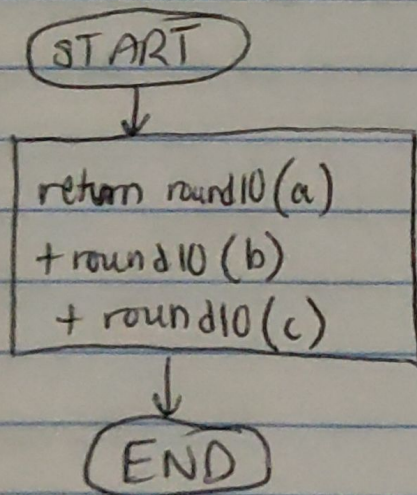 START
return round10(a)
+ round10(b)
+ round10(c)
END